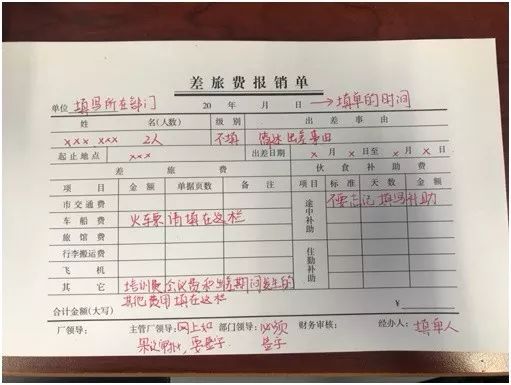 差旅费报销单
单位 填写所在部门 20 年 月 日 →填单的时间
姓 名(人数) 级别 出差事由
xxx xxx 2人 不填 简述出差事由
起止地点 xxx 出差日期 x月x日至x月x日
差旅费 伙食补助费
项目 金额 单据页数 备注 项目 标准 天数 金额
市交通费 途中补助 不要忘记填写补助
车船费 火车票请填在这栏
旅馆费
行李搬运费 住勤补助
飞机
其它 培训费会议费和出差期间发生的
其他费用填在这栏
合计金额(大写) ¥
厂领导: 主管厂领导:网上如 部门领导:必须 财务审核: 经办人:填单人
要签字 签字